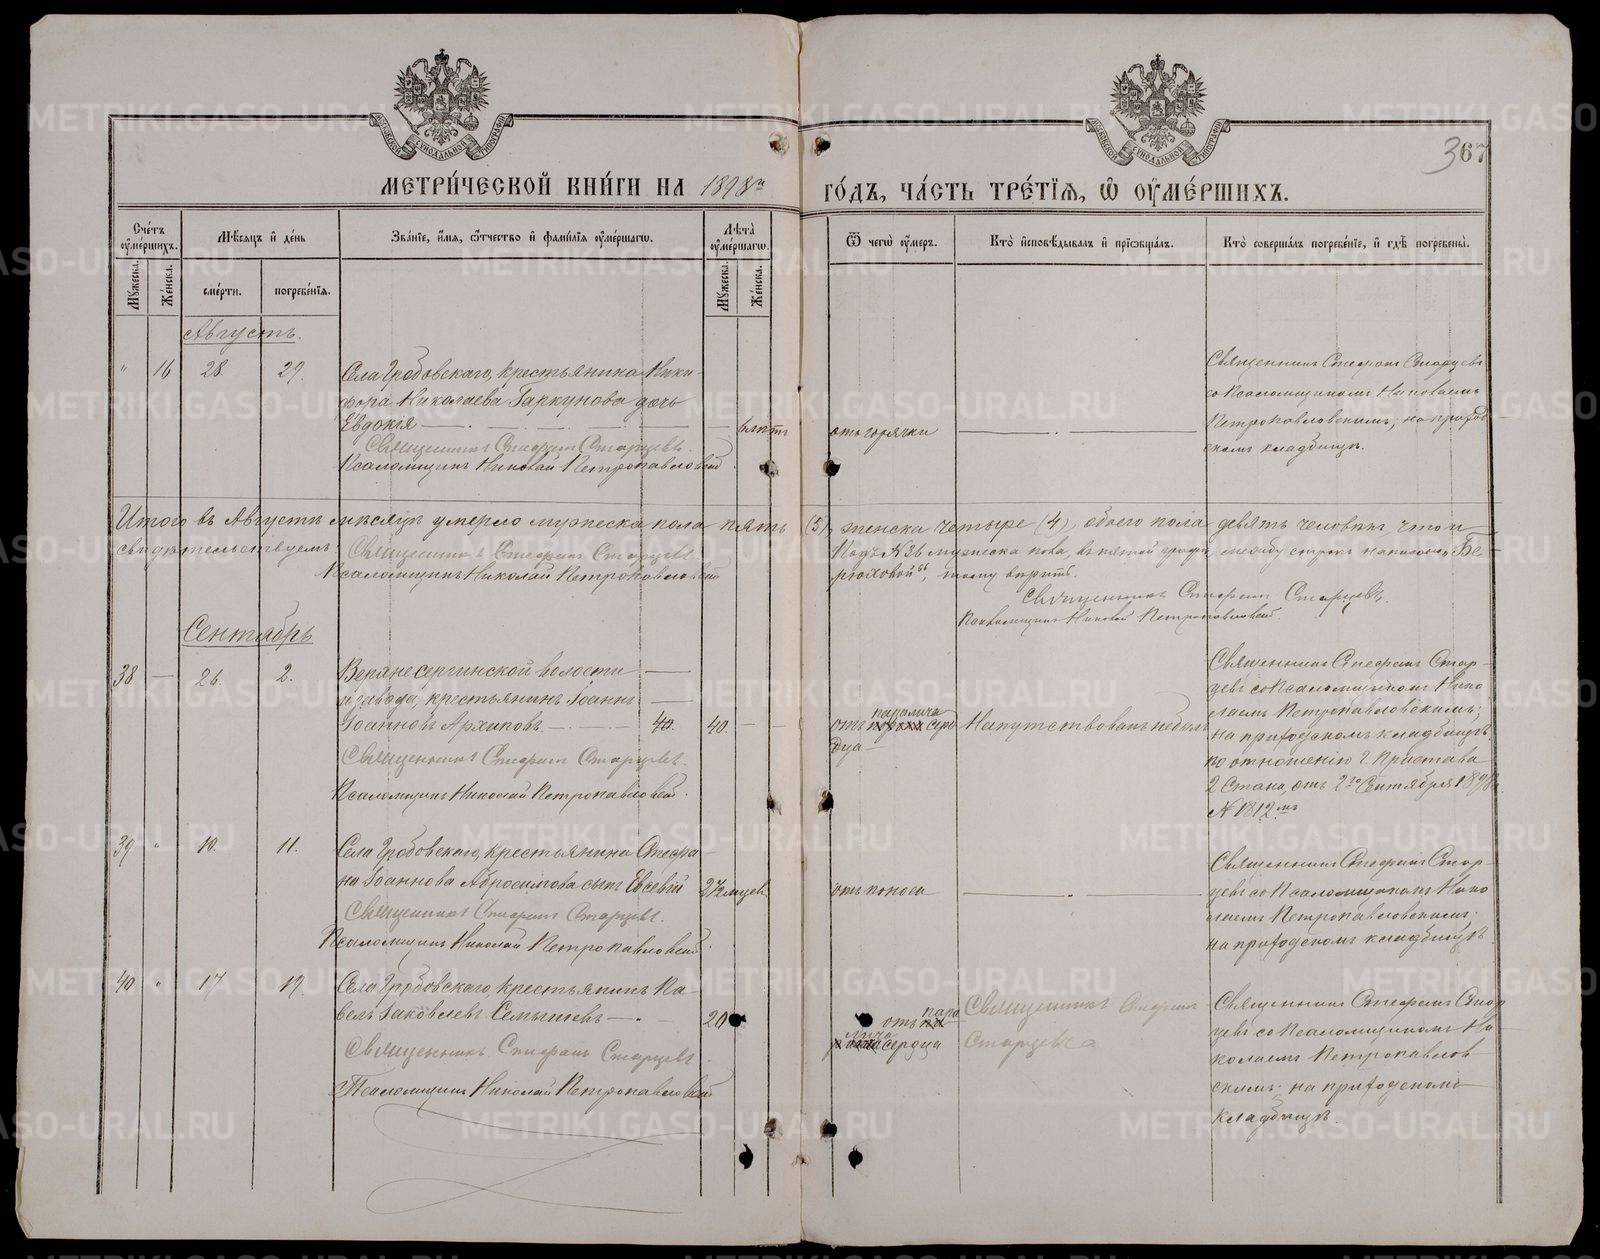 367
МЕТРИ́ЧЕСКОЙ КНИ́ГИ НА 1898й ГО́ДЪ, ЧА́СТЬ ТРЕ́ТІѦ, Ѡ҆ ОУ҆МЕ́РШИХЪ.
Сче́тъ оу҆ме́ршихъ.
Мѣ́сяцъ и҆ де́нь
Зва́нїе, и҆́мѧ, ѻ҆́тчество и҆ фами́лїѧ оу҆ме́ршагѡ.
Лѣ́та оу҆ме́ршагѡ.
Ѿ чегѡ̀ оу҆́меръ.
Кто̀ и҆сповѣ́дывалъ и҆ прїѡбща́лъ.
Кто̀ соверша́лъ погребе́нїе, и҆ гдѣ̀ погребены̀.
Мꙋ́жеска.
Же́нска.
сме́рти.
погребе́нїѧ.
Мꙋ́жеска.
Же́нска.
Августъ.
" 16 28. 29.
Села Гробовскаго, крестьянина Ники-
фора Николаева Гаркунова дочь
Евдокія
Священникъ Стефанъ Старцевъ.
Псаломщикъ Николай Петропавловскій
отъ горячки
Священникъ Стефанъ Старцевъ
со Псаломщикомъ Николаемъ
Петропавловскимъ; на приход-
скомъ кладбищѣ.
Итого въ Августѣ мѣсяцѣ умерло мужеска пола пять (5), женска четыре (4), обоего пола девять человѣкъ что и
свидѣтельствуемъ: Священникъ Стефанъ Старцевъ.
Псаломщикъ Николай Петропавловскій
Подъ № 36 мужеска пола, въ пятой графѣ, между строкъ написано „Бе-
рюховой“, тому вѣрить.
Священникъ Стефанъ Старцевъ.
Псаломщикъ Николай Петропавловскій.
Сентябрь
38 — 26. 2.
Верхнесергинской волости
и завода, крестьянинъ Іоаннъ
Іоанновъ Архиповъ. — 40. 40.
Священникъ Стефанъ Старцевъ.
Псаломщикъ Николай Петропавловскій.
паралича
отъ серд-
дца
Напутствованъ небылъ
Священникъ Стефанъ Стар-
цевъ со Псаломщикомъ Нико
лаемъ Петропавловскимъ;
на приходскомъ кладбищѣ.
по отношенію Г. Пристава
2 Стана, отъ 2го Сентября 1898 г.
№ 1812.мъ
39 " 10. 11.
Села Гробовскаго, крестьянина Стефа
на Іоаннова Абросимова сынъ Евсевій
Священникъ Стефанъ Старцевъ.
Псаломщикъ Николай Петропавловскій.
2½ мцев
отъ поноса
Священникъ Стефанъ Стар-
цевъ со Псаломщикомъ Нико
лаемъ Петропавловскимъ;
на приходскомъ кладбищѣ.
40 " 17 19.
Села Гробовскаго, крестьянинъ Па-
велъ Іаковлевъ Семышевъ —
Священникъ Стефанъ Старцевъ.
Псаломщикъ Николай Петропавловскій
20
пара
отъ
лича
сердца
Священникъ Стефанъ
Старцевъ
Священникъ Стефанъ Стар
цевъ со Псаломщикомъ Ни
колаемъ Петропавлов
скимъ; на приходскомъ
кладбищѣ.
METRIKI.GASO-URAL.RU